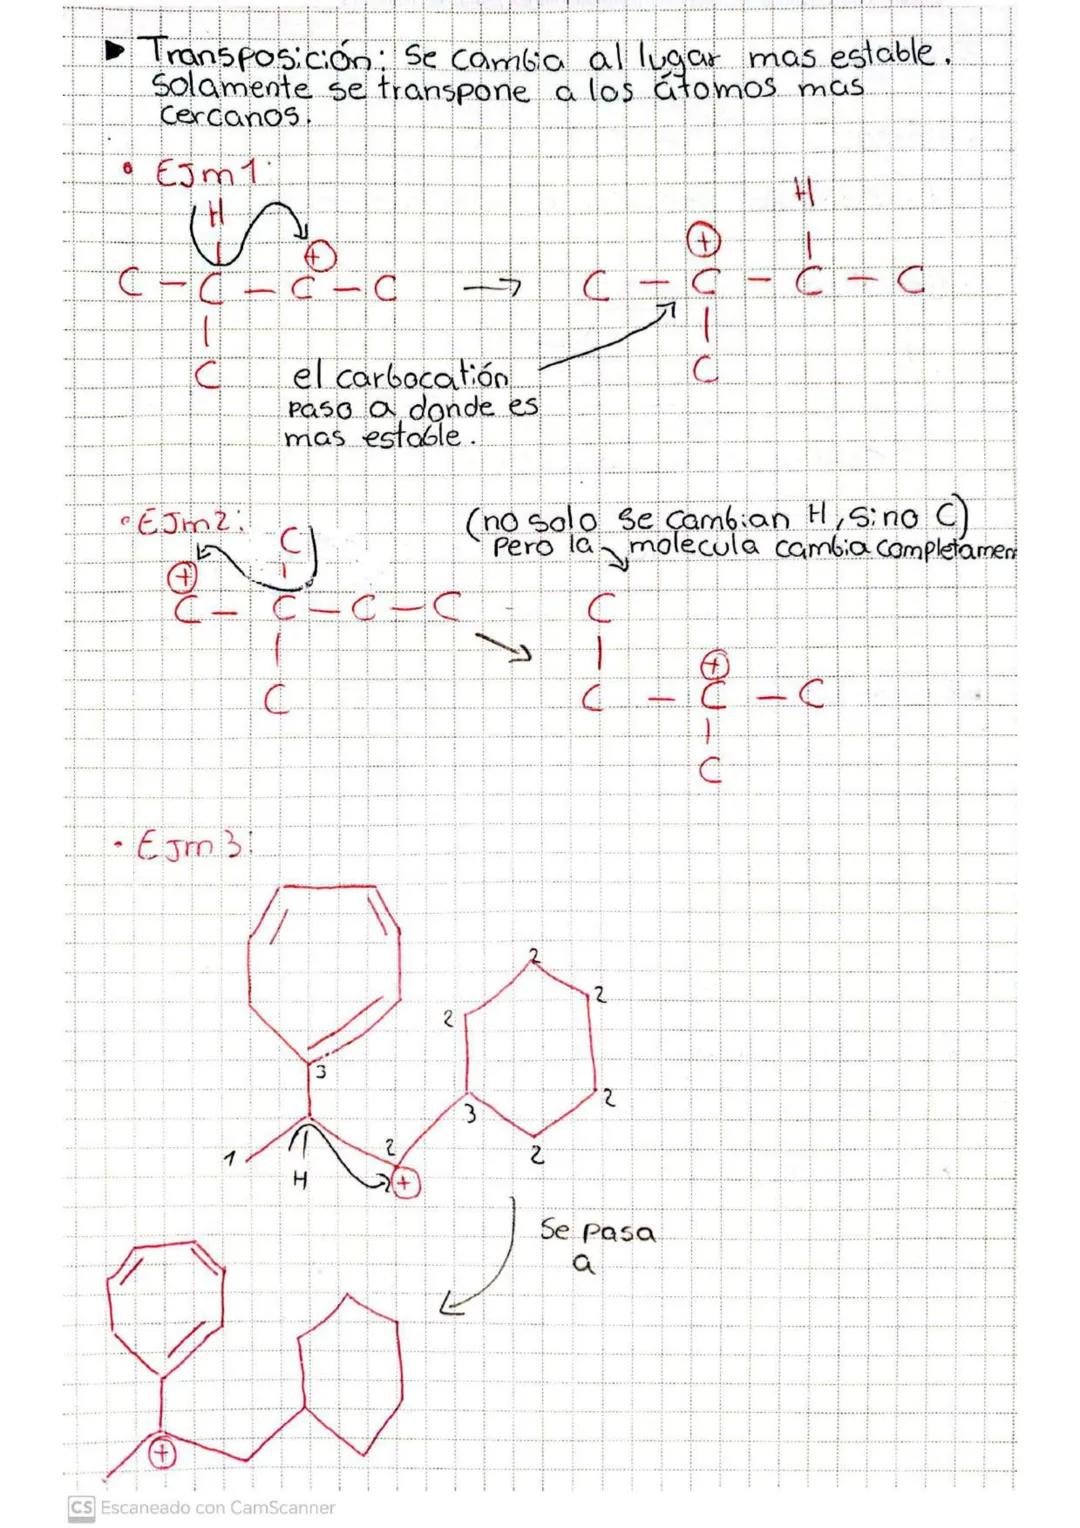 ▶ Transposición: Se cambia al lugar mas estable.
Solamente se transpone a los átomos mas
cercanos.
• EJm1:
H H
⊕ ⊕
C - C - C - C → C - C - C - C
| |
C C
el carbocatión
paso a donde es
mas estable.
• EJm2: (no solo se cambian H, sino C)
Pero la molecula cambia completamen
C
⊕ |
C - C - C - C C
| |
C C - C - C
⊕
|
C
• EJm3:
2
2 2
3 2
3
2
1 2
H ⊕
Se pasa
a
⊕
CS Escaneado con CamScanner